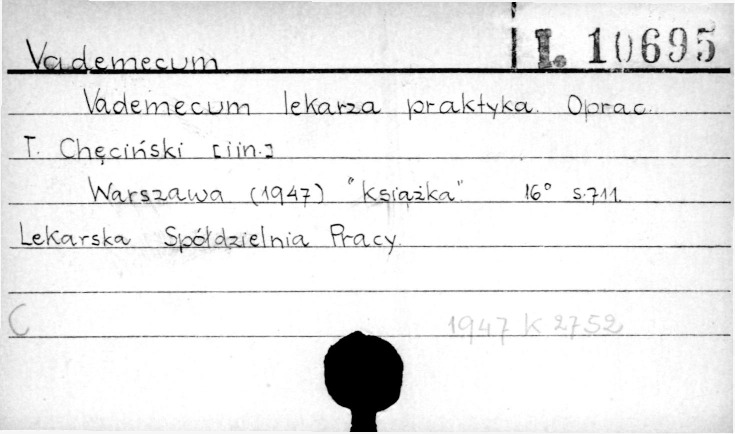 Vademecum I. 10695
Vademecum lekarza praktyka. Oprac.
T. Chęciński [i in.]
Warszawa (1947) "Książka" 16° s.711.
Lekarska Spółdzielnia Pracy.
C 1947 K 2752